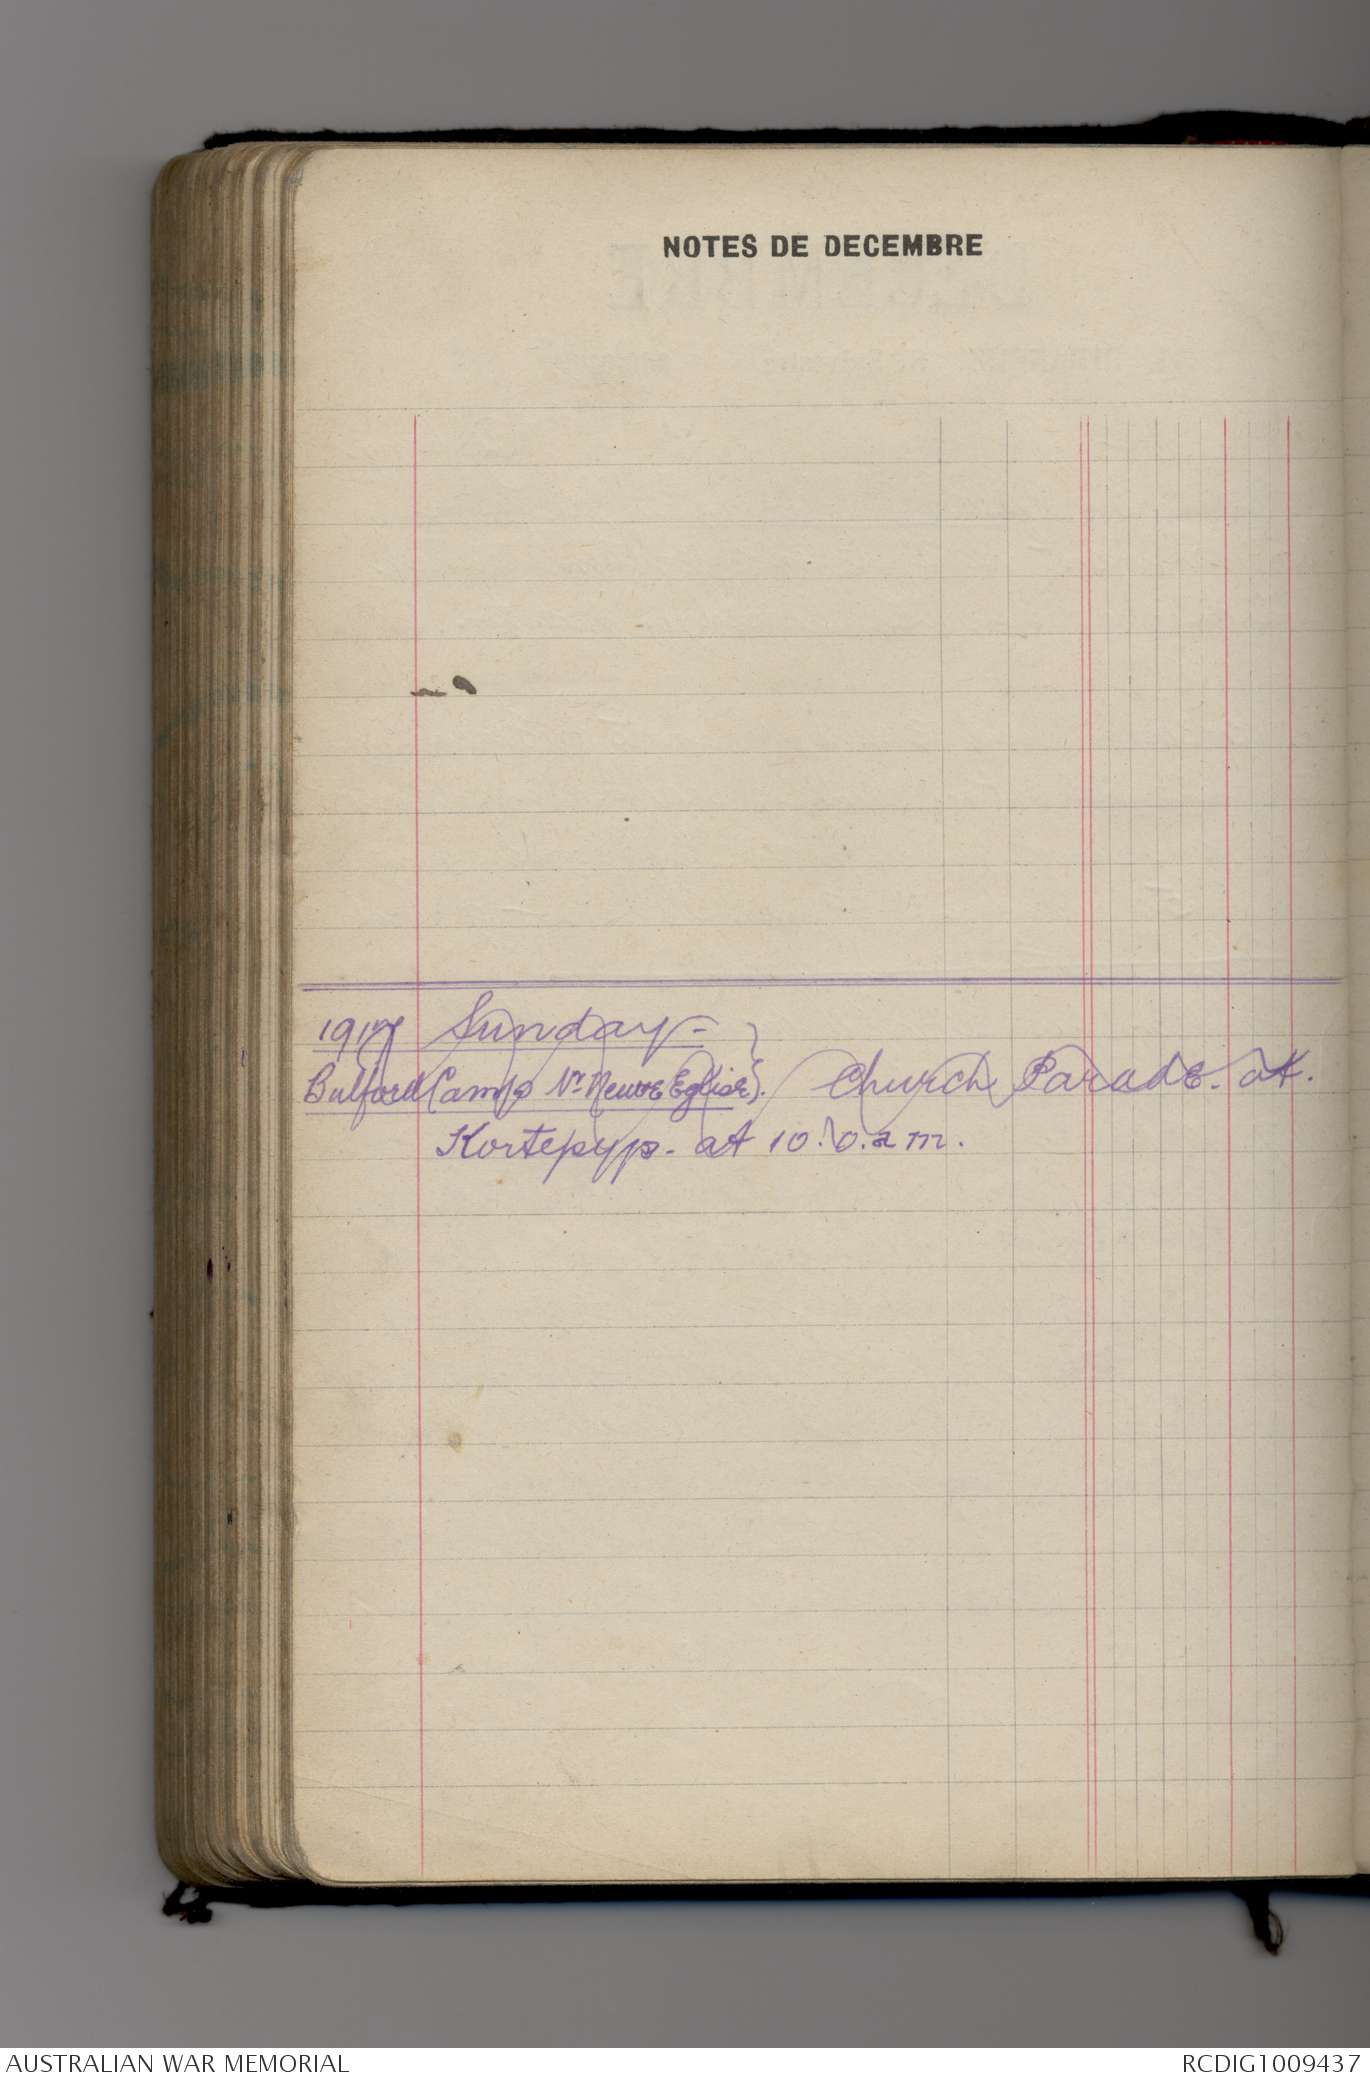 NOTES DE DECEMBRE
1917 Sunday -
Bulford Camp Nr Neuve Eglise). Church Parade. at.
Kortepyp. at 10.0.am.
AUSTRALIAN WAR MEMORIAL
RCDIG1009437